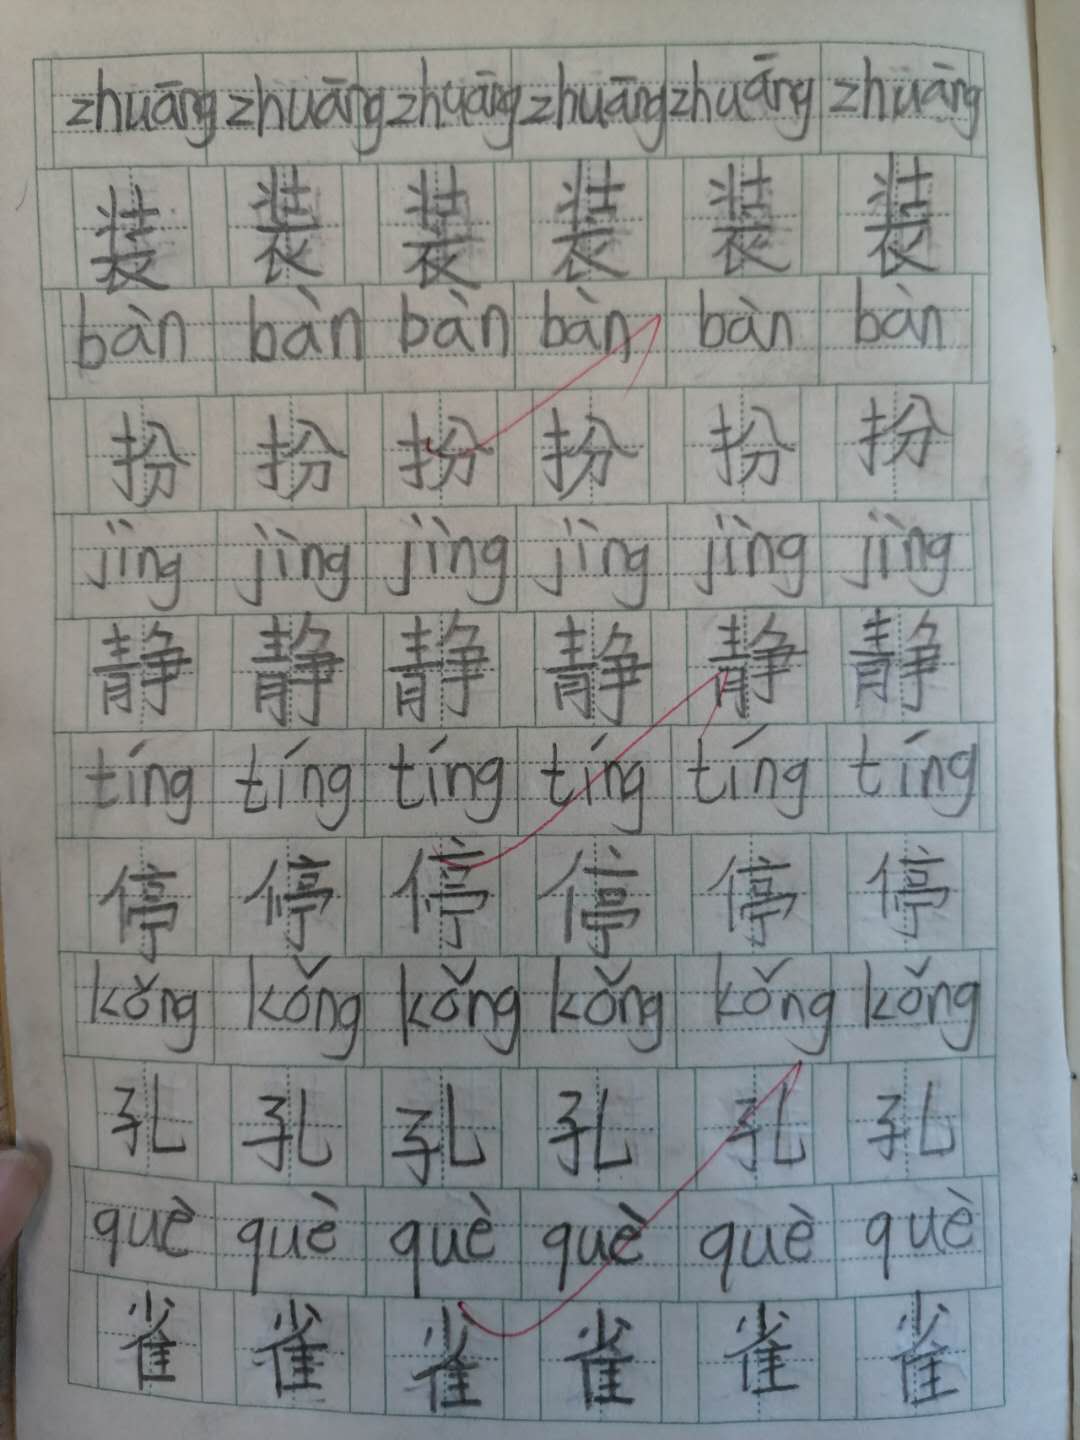 zhuāng zhuāng zhuāng zhuāng zhuāng zhuāng
装 装 装 装 装 装
bàn bàn bàn bàn bàn bàn
扮 扮 扮 扮 扮 扮
jìng jìng jìng jìng jìng jìng
静 静 静 静 静 静
tíng tíng tíng tíng tíng tíng
停 停 停 停 停 停
kǒng kǒng kǒng kǒng kǒng kǒng
孔 孔 孔 孔 孔 孔
què què què què què què
雀 雀 雀 雀 雀 雀